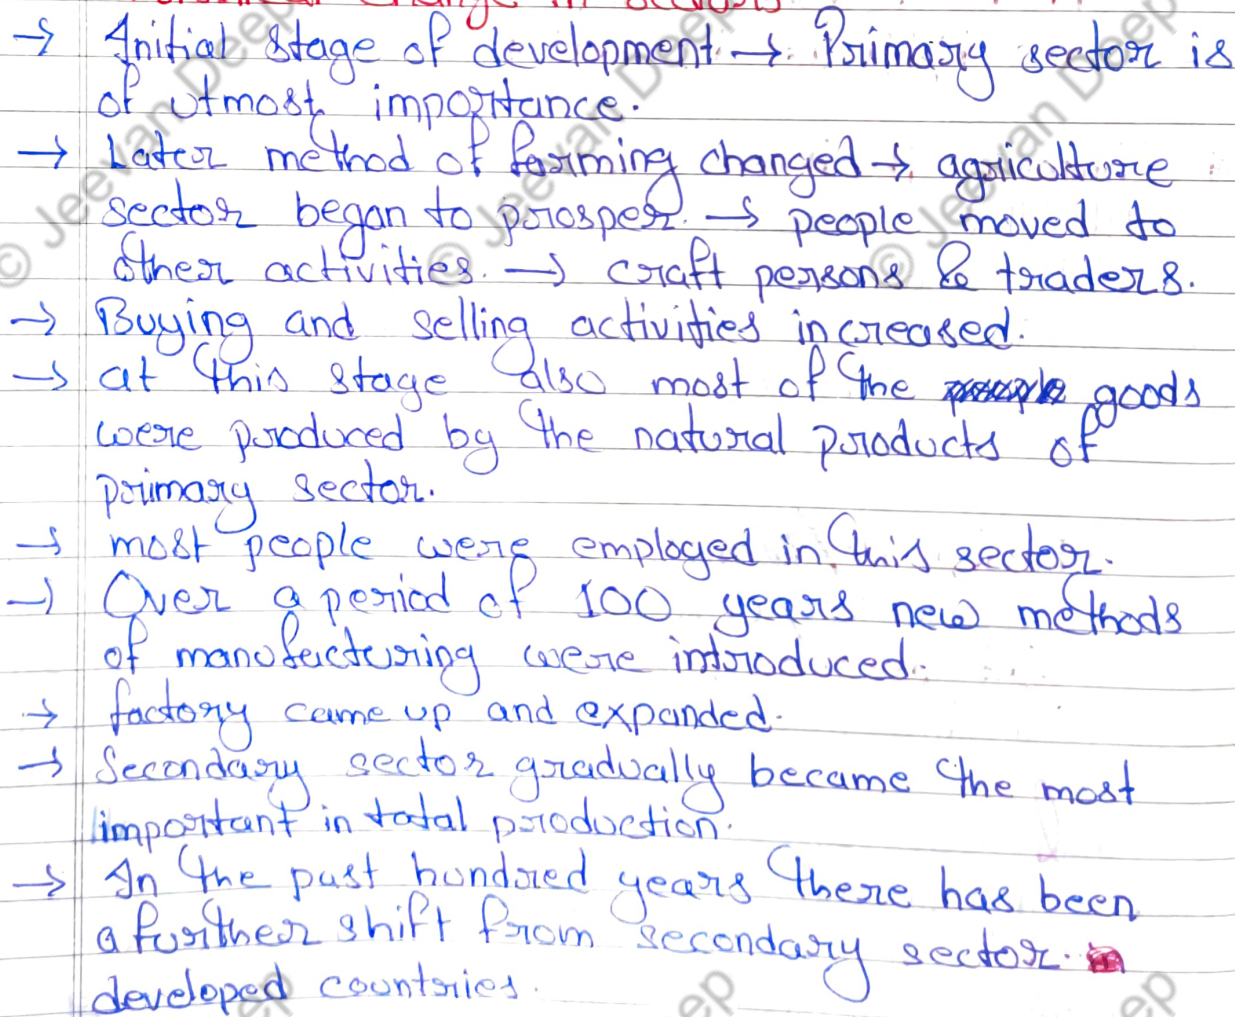 Historical Change in Sectors
→ Initial stage of development → Primary sector is
of utmost importance.
→ Later method of farming changed → agriculture
sector began to prosper. → people moved to
other activities. → craft persons & traders.
→ Buying and selling activities increased.
→ at this stage also most of the goods
were produced by the natural products of
primary sector.
→ most people were employed in this sector.
→ Over a period of 100 years new methods
of manufacturing were introduced.
→ factory came up and expanded.
→ Secondary sector gradually became the most
important in total production.
→ In the past hundred years there has been
a further shift from secondary sector.
developed countries.
© Jeevan Deep
© Jeevan Deep
© Jeevan Deep